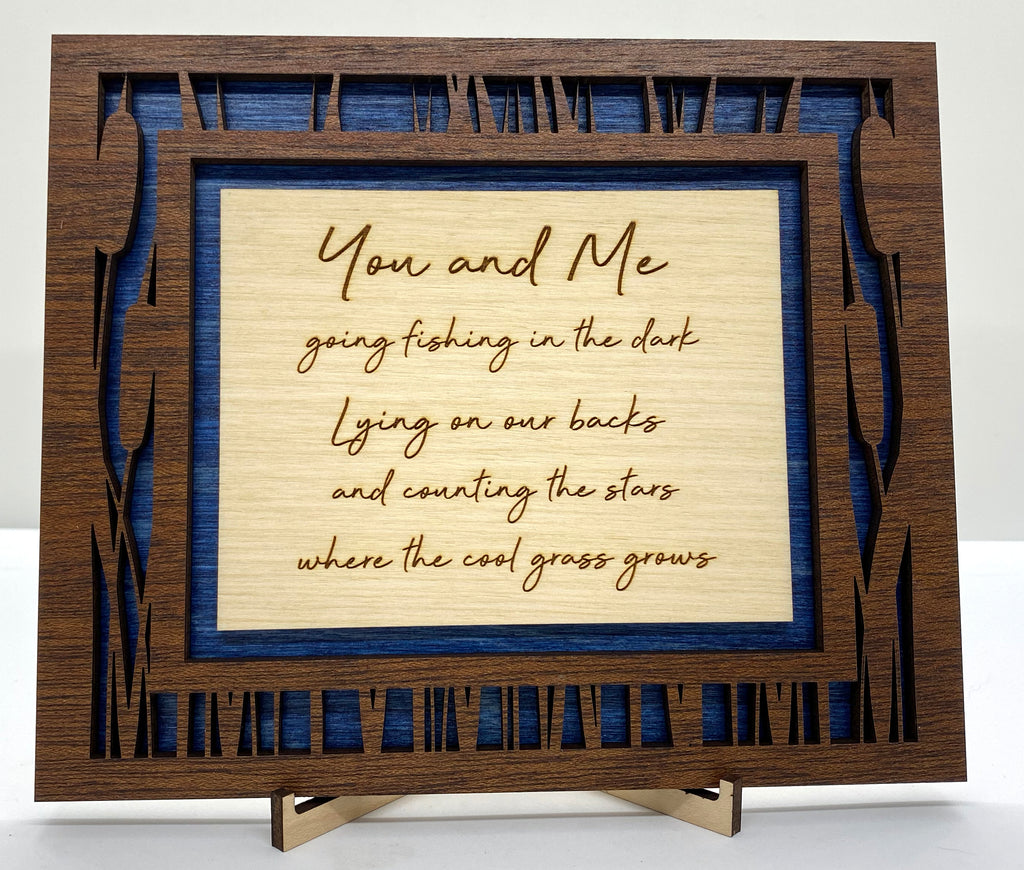 You and Me
going fishing in the dark
Lying on our backs
and counting the stars
where the cool grass grows